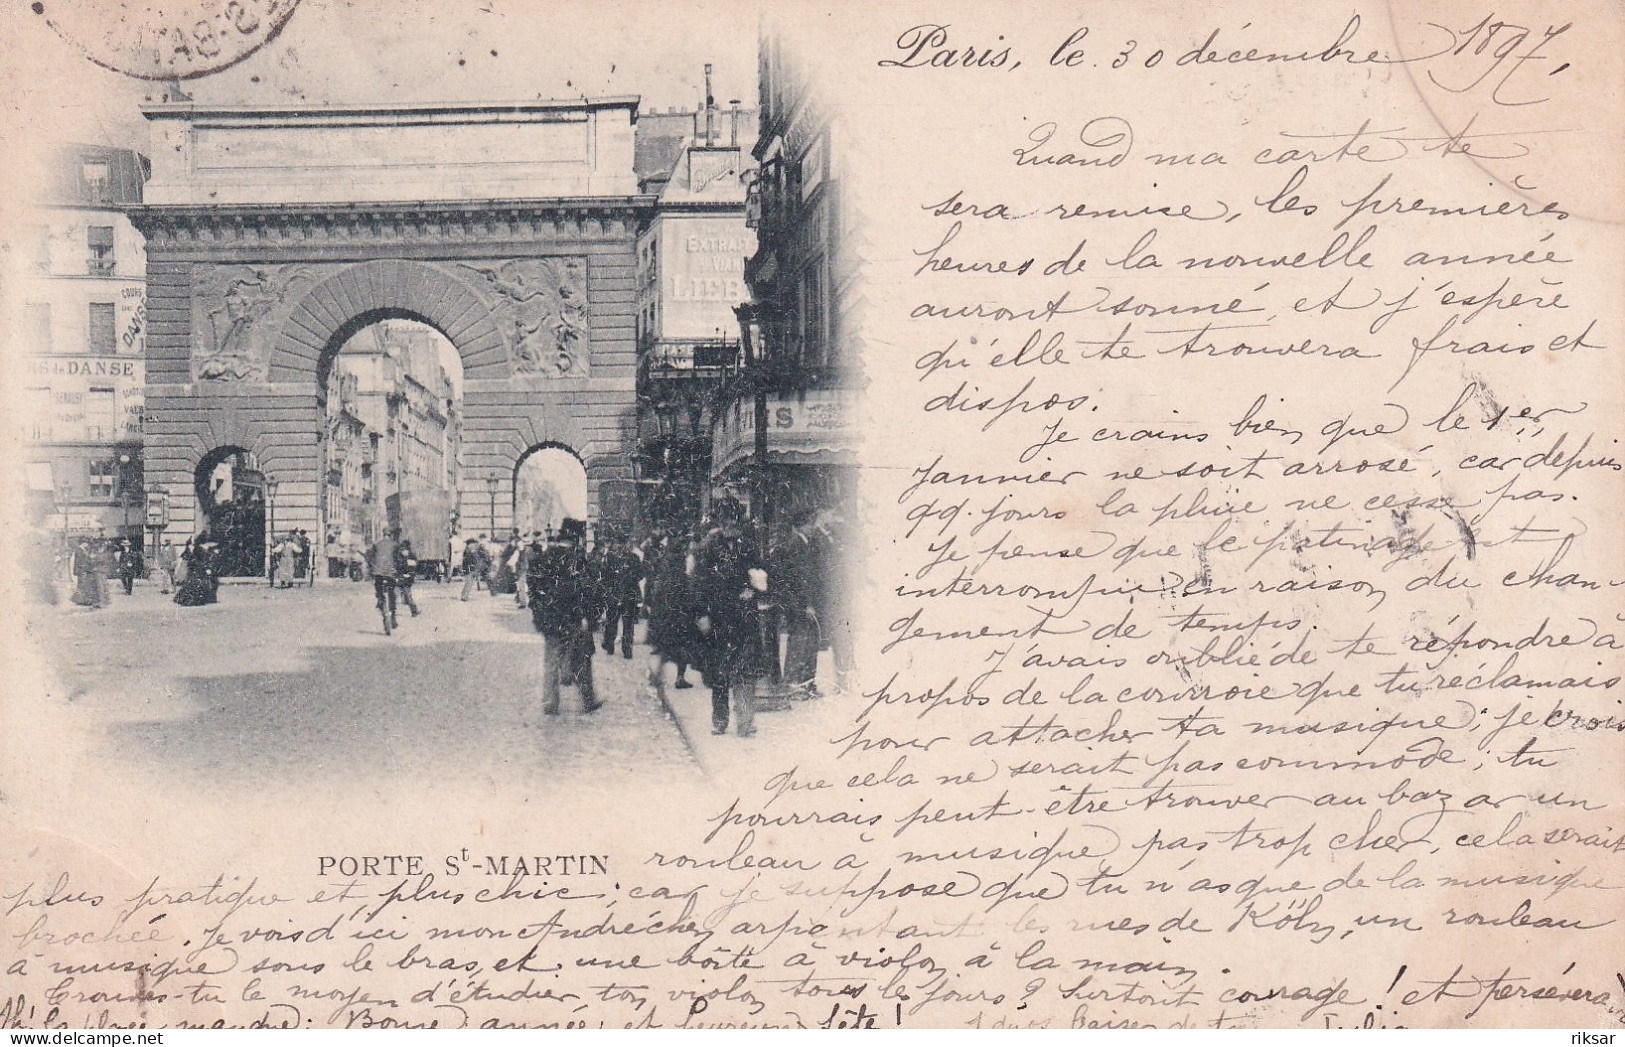 Paris, le 30 décembre 1897,
Quand ma carte te
sera remise, les premières
heures de la nouvelle année
auront sonné, et j'espère
qu'elle te trouvera frais et
dispos.
Je crains bien que le 1er
Janvier ne soit arrosé, car depuis
qq. jours la pluie ne cesse pas.
Je pense que le patinage est
interrompu en raison du chan-
gement de temps.
J'avais oublié de te répondre à
propos de la courroie que tu réclamais
pour attacher ta musique; je crois
que cela ne serait pas commode; tu
pourrais peut-être trouver au bazar un
rouleau à musique, pas trop cher, cela serait
plus pratique et plus chic; car je suppose que tu n'as que de la musique
brochée. Je vois d'ici mon André chéri arpentant les rues de Köln, un rouleau
à musique sous le bras, et une boîte à violon à la main.
Trouves-tu le moyen d'étudier ton violon tous les jours? Surtout courage! et persévérance
Ah! la place manque: Bonne année et heureuse fête! baiser de ta Julia
PORTE St-MARTIN
EXTRAIT
VIAN
LIEB
COURS
DE
DANSE
RS de DANSE
riksar